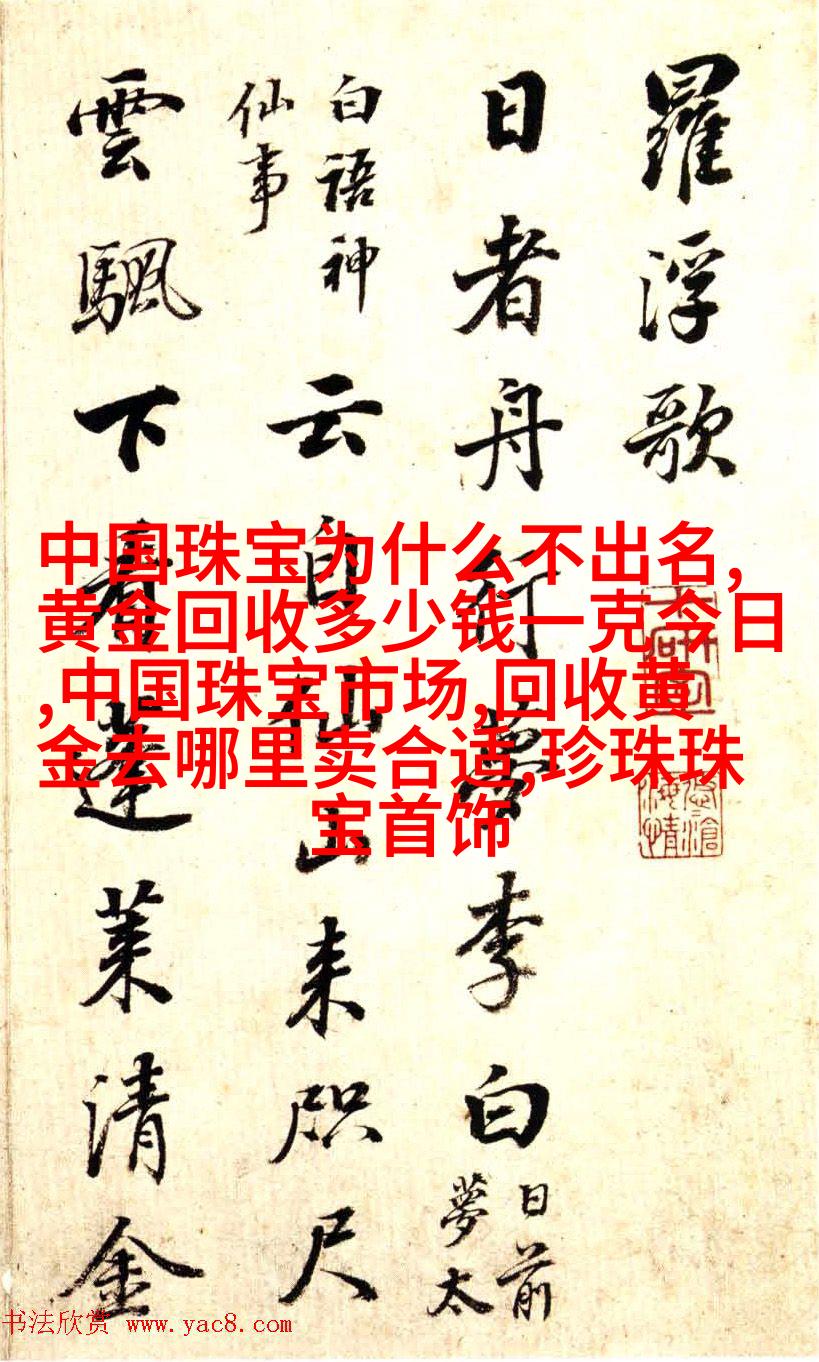 羅浮歌
日者舟行夢李白
日前
夢太
白語神
仙事
云自仙山来咫尺
雲颿下看蓬莱清金
中国珠宝为什么不出名,
黄金回收多少钱一克今日
,中国珠宝市场,回收黄
金去哪里卖合适,珍珠珠
宝首饰
书法欣赏 www.yac8.com